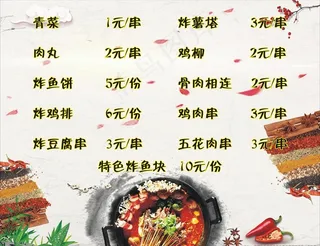 青菜 1元/串 炸薯塔 3元/串
肉丸 2元/串 鸡柳 2元/串
炸鱼饼 5元/份 骨肉相连 2元/串
炸鸡排 6元/份 鸡肉串 3元/串
炸豆腐串 3元/串 五花肉串 3元/串
特色炸鱼块 10元/份